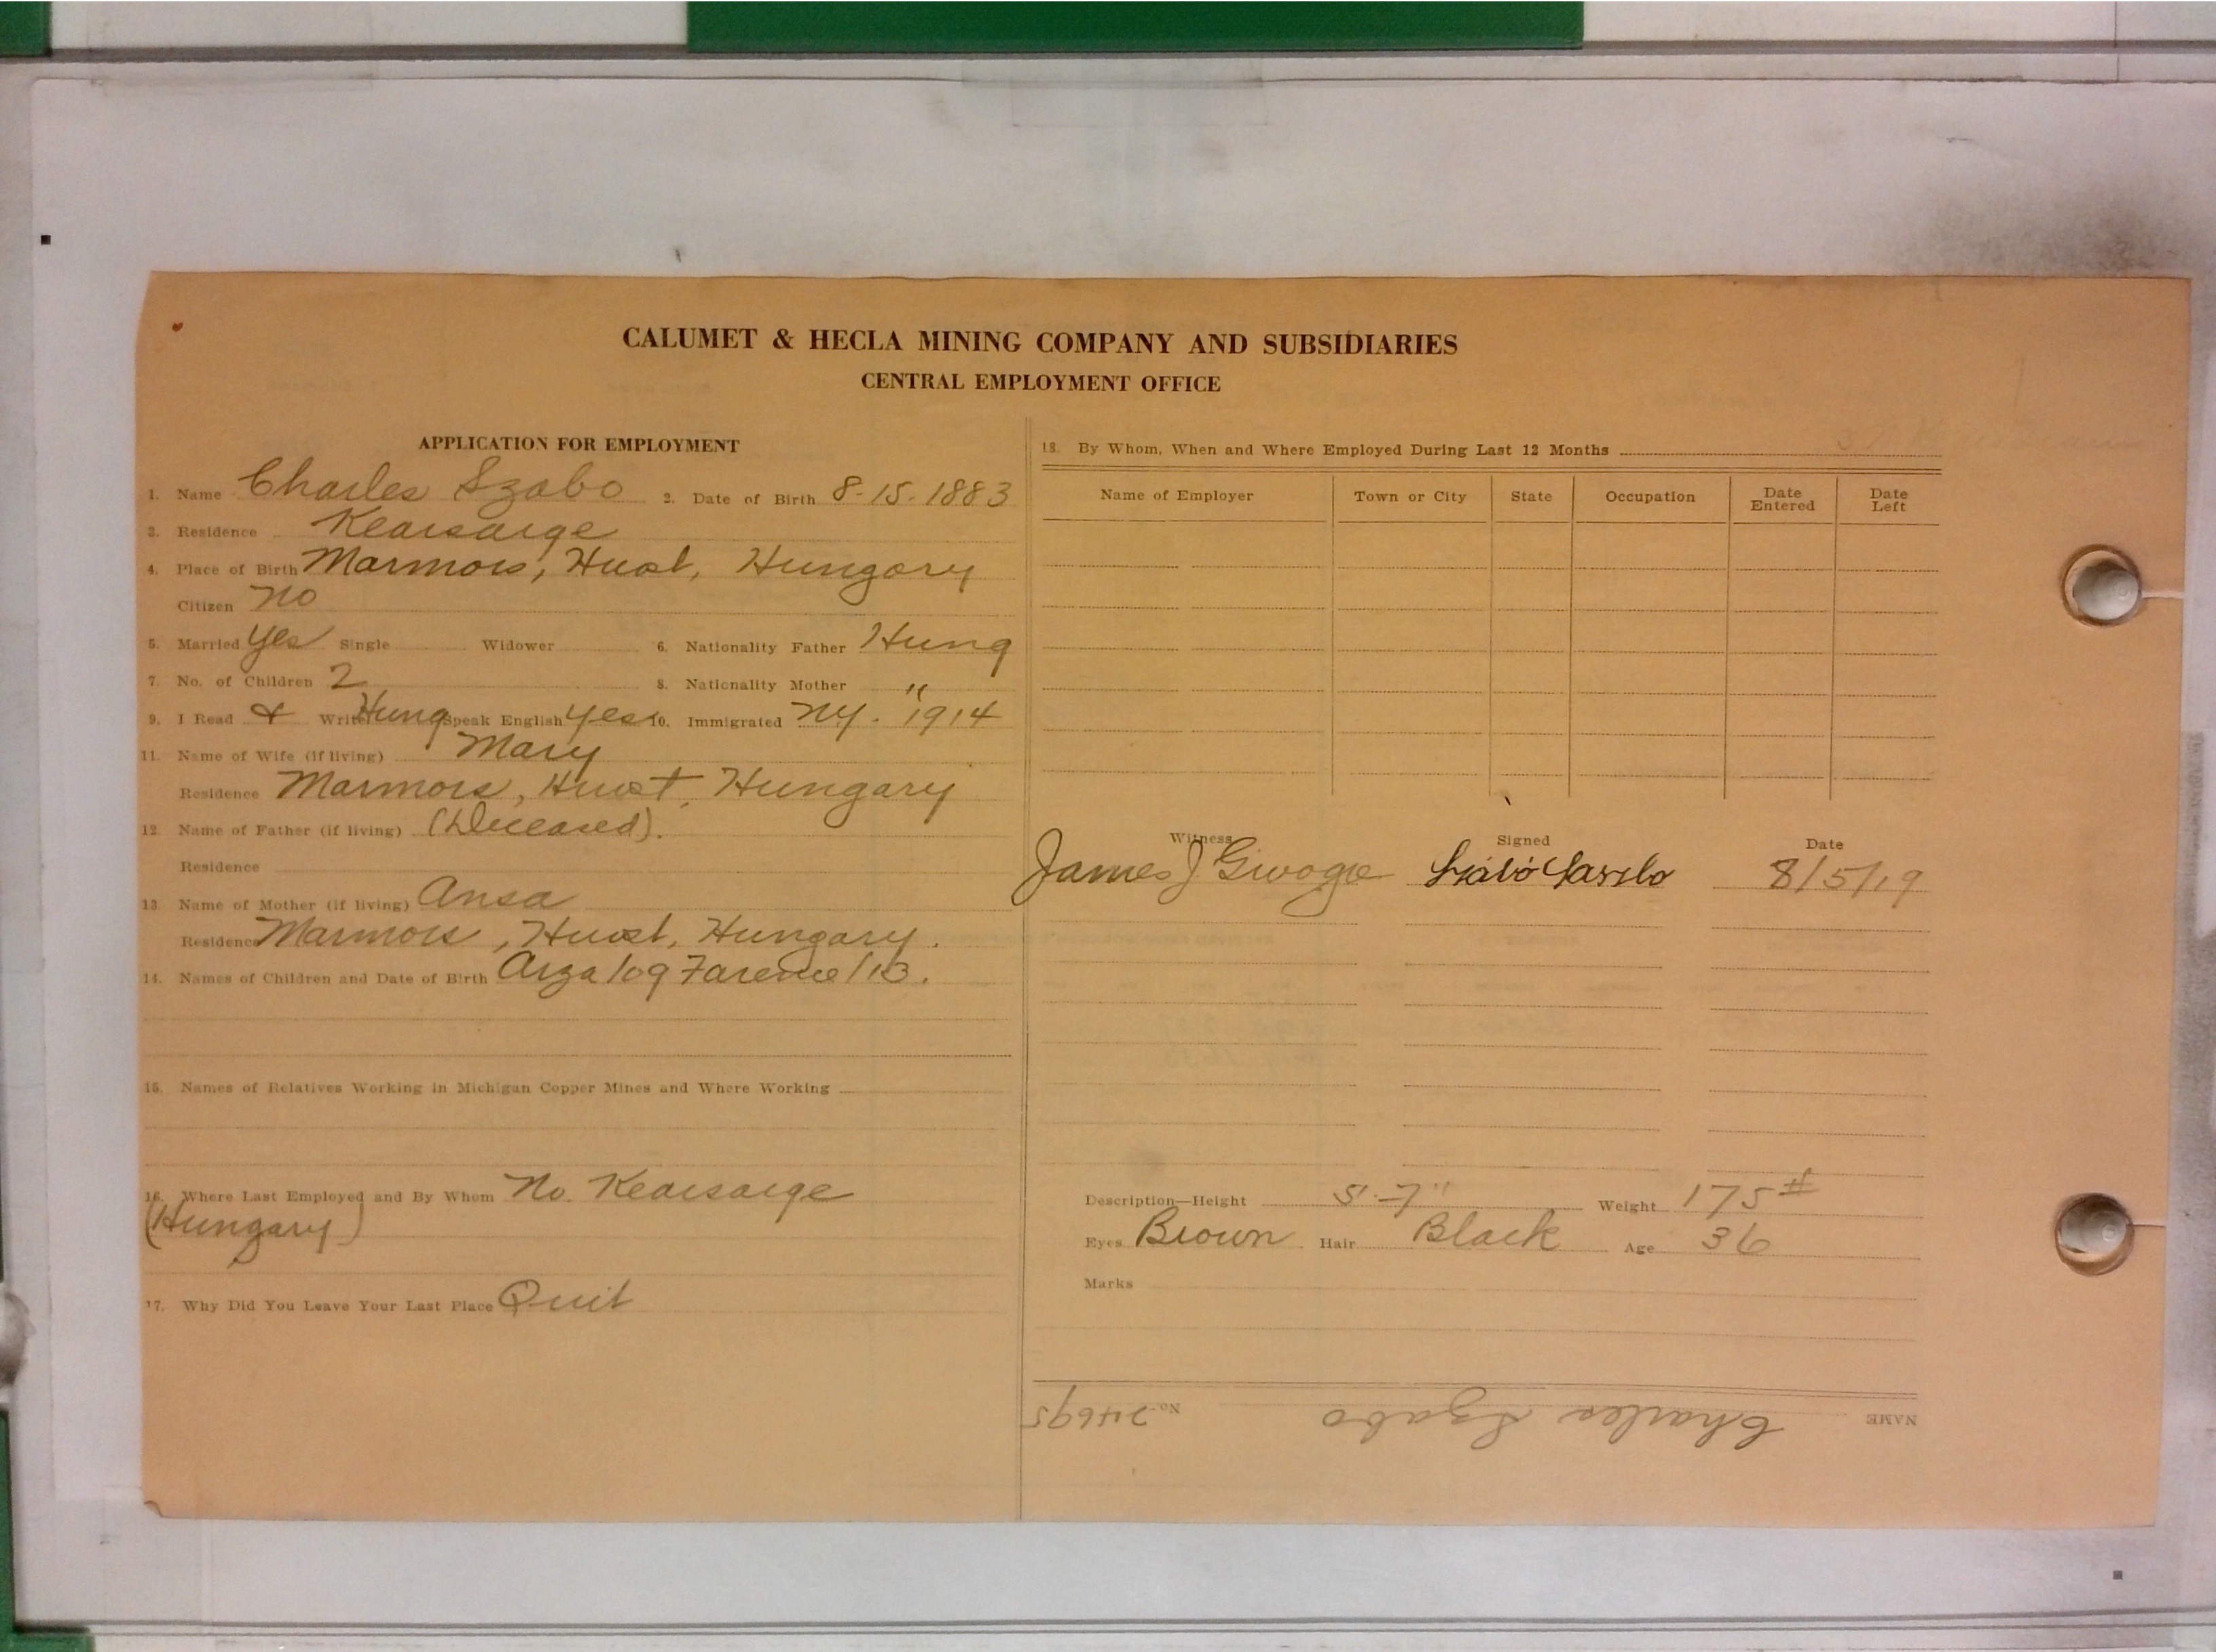 CALUMET & HECLA MINING COMPANY AND SUBSIDIARIES
CENTRAL EMPLOYMENT OFFICE
APPLICATION FOR EMPLOYMENT
1. Name Charles Szabo 2. Date of Birth 8-15-1883
3. Residence Kearsarge
4. Place of Birth Marmors, Hust, Hungary
Citizen No
5. Married Yes Single Widower 6. Nationality Father Hung
7. No. of Children 2 8. Nationality Mother "
9. I Read & Write Hung Speak English Yes 10. Immigrated N.Y. 1914
11. Name of Wife (if living) Mary
Residence Marmors, Hust, Hungary
12. Name of Father (if living) (Deceased).
Residence
13. Name of Mother (if living) Ansa
Residence Marmors, Hust, Hungary.
14. Names of Children and Date of Birth Arza/09 Farence/13.
15. Names of Relatives Working in Michigan Copper Mines and Where Working
16. Where Last Employed and By Whom No. Kearsarge
(Hungary)
17. Why Did You Leave Your Last Place Quit
18. By Whom, When and Where Employed During Last 12 Months
Name of Employer Town or City State Occupation Date Entered Date Left
Witness Signed Date
James J Szabó 8/5/19
Description—Height 5'-7" Weight 175#
Eyes Brown Hair Black Age 36
Marks
NAME Charles Szabo No. 24695